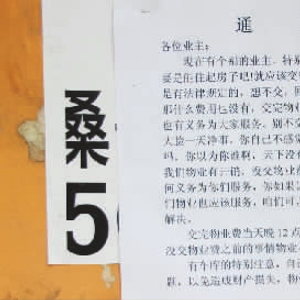 桑
5
通
各位业主：
现在有个别的业主，特别
要是能住起房子吧!就应该交
是有法律规定的，想不交，回
那什么费用也没有，交完物业
也有义务为大家服务，别不交
大盗一天净事，你自己不感觉
吗，你以为你谁啊，天下没有
我们物业有云销，没交物业
何义务为你们服务，你如果
们物业也应该服务，咱们可
解决。
交完物业费当天晚12点
没交物业费之前的事情物业
有车库的特别注意，自
题，以免造成财产损失，物